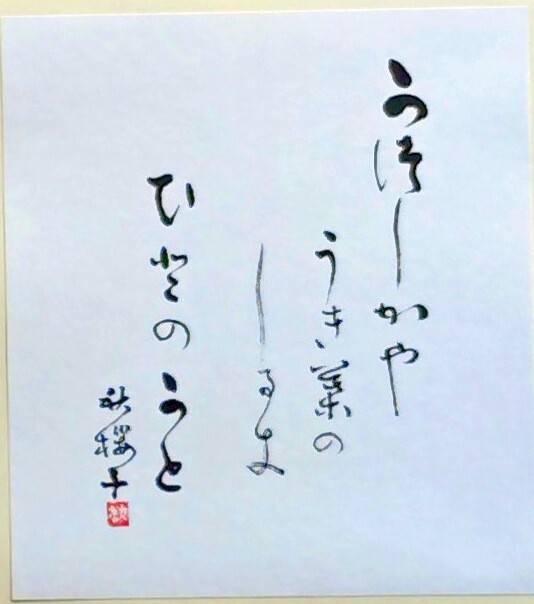 かつしかや
うき葉の
しるき
ひとのかと
秋櫻子